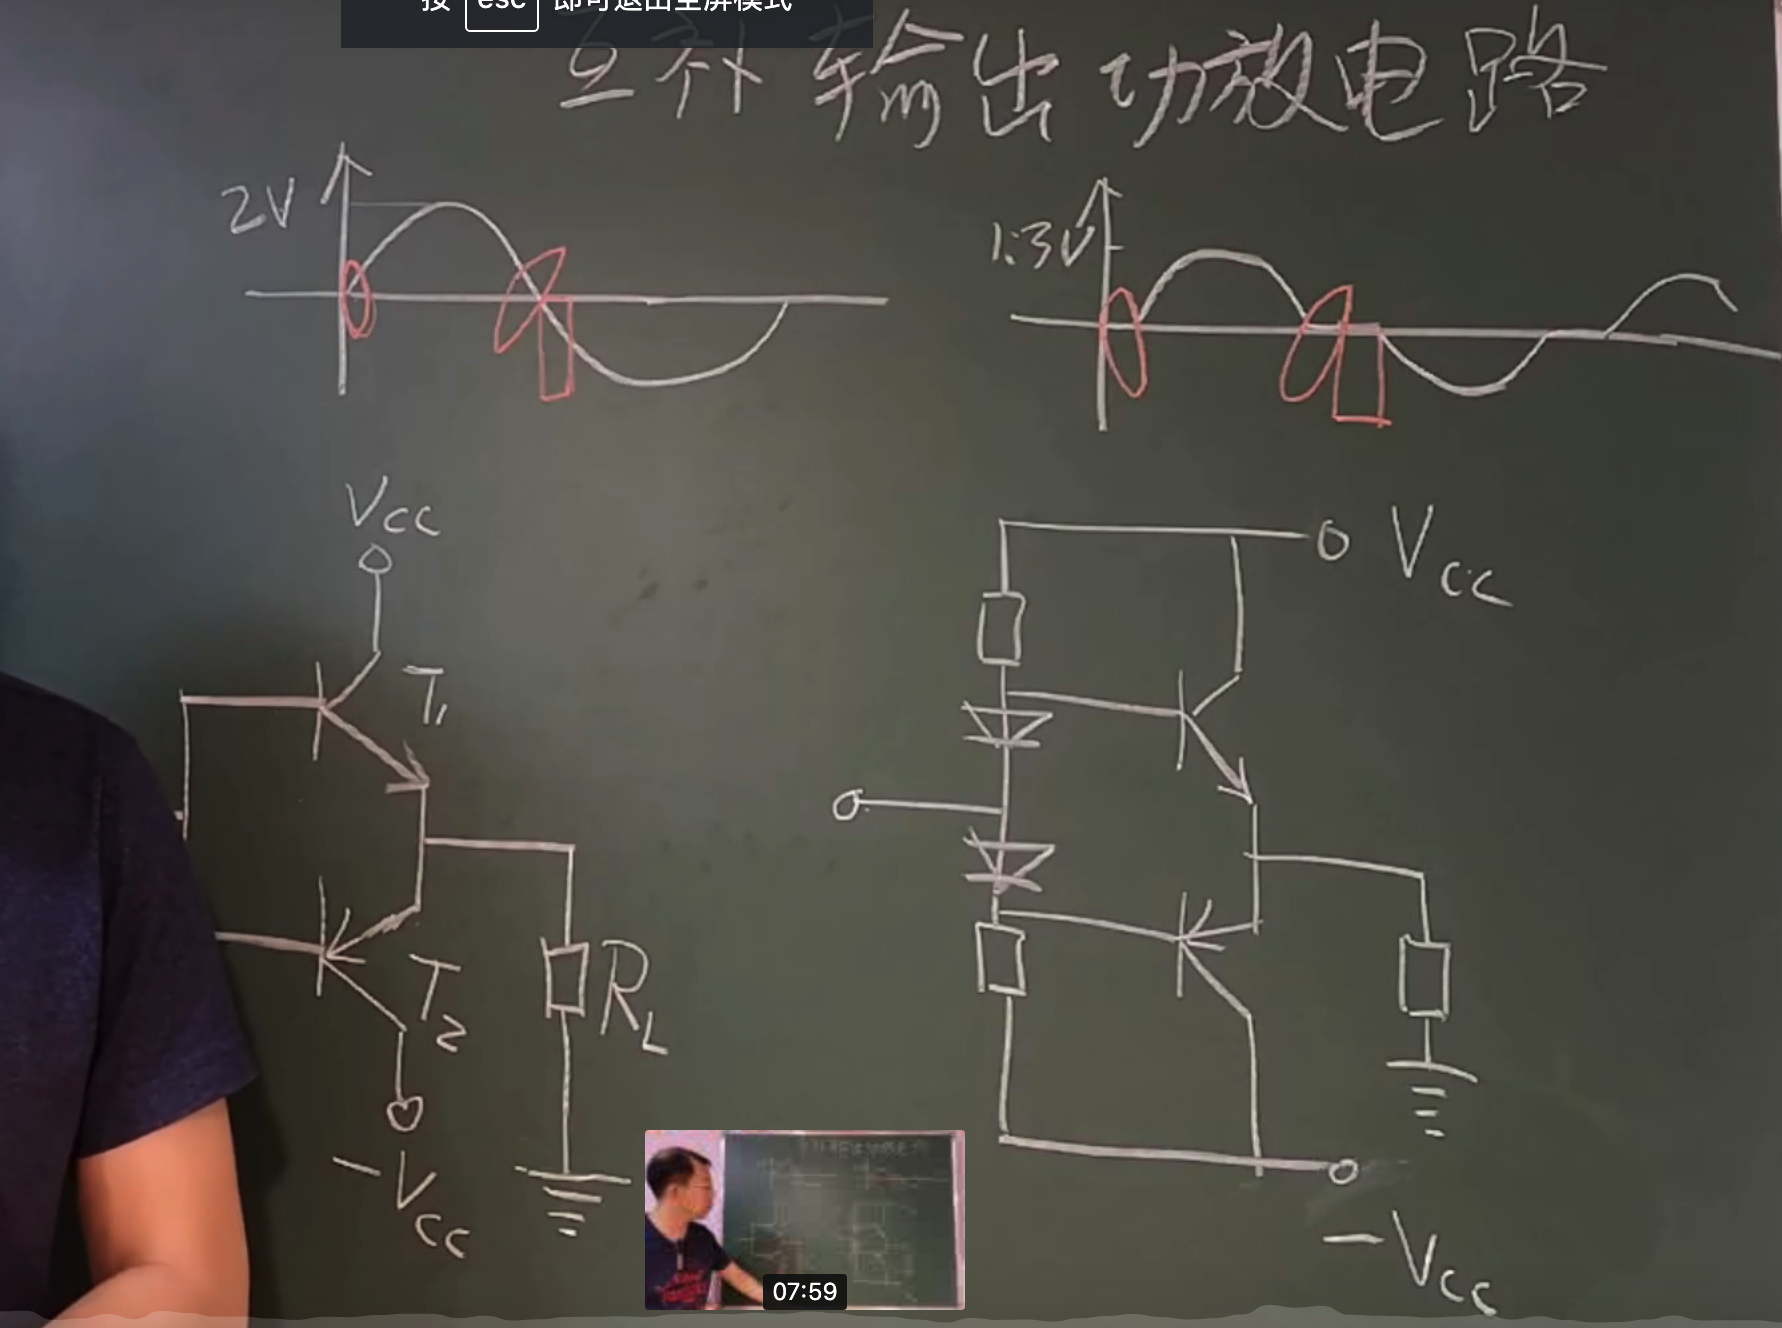 按 esc 即可退出全屏模式
互补输出功放电路
2V
1.3V
Vcc
Vcc
T1
T2
RL
-Vcc
-Vcc
07:59